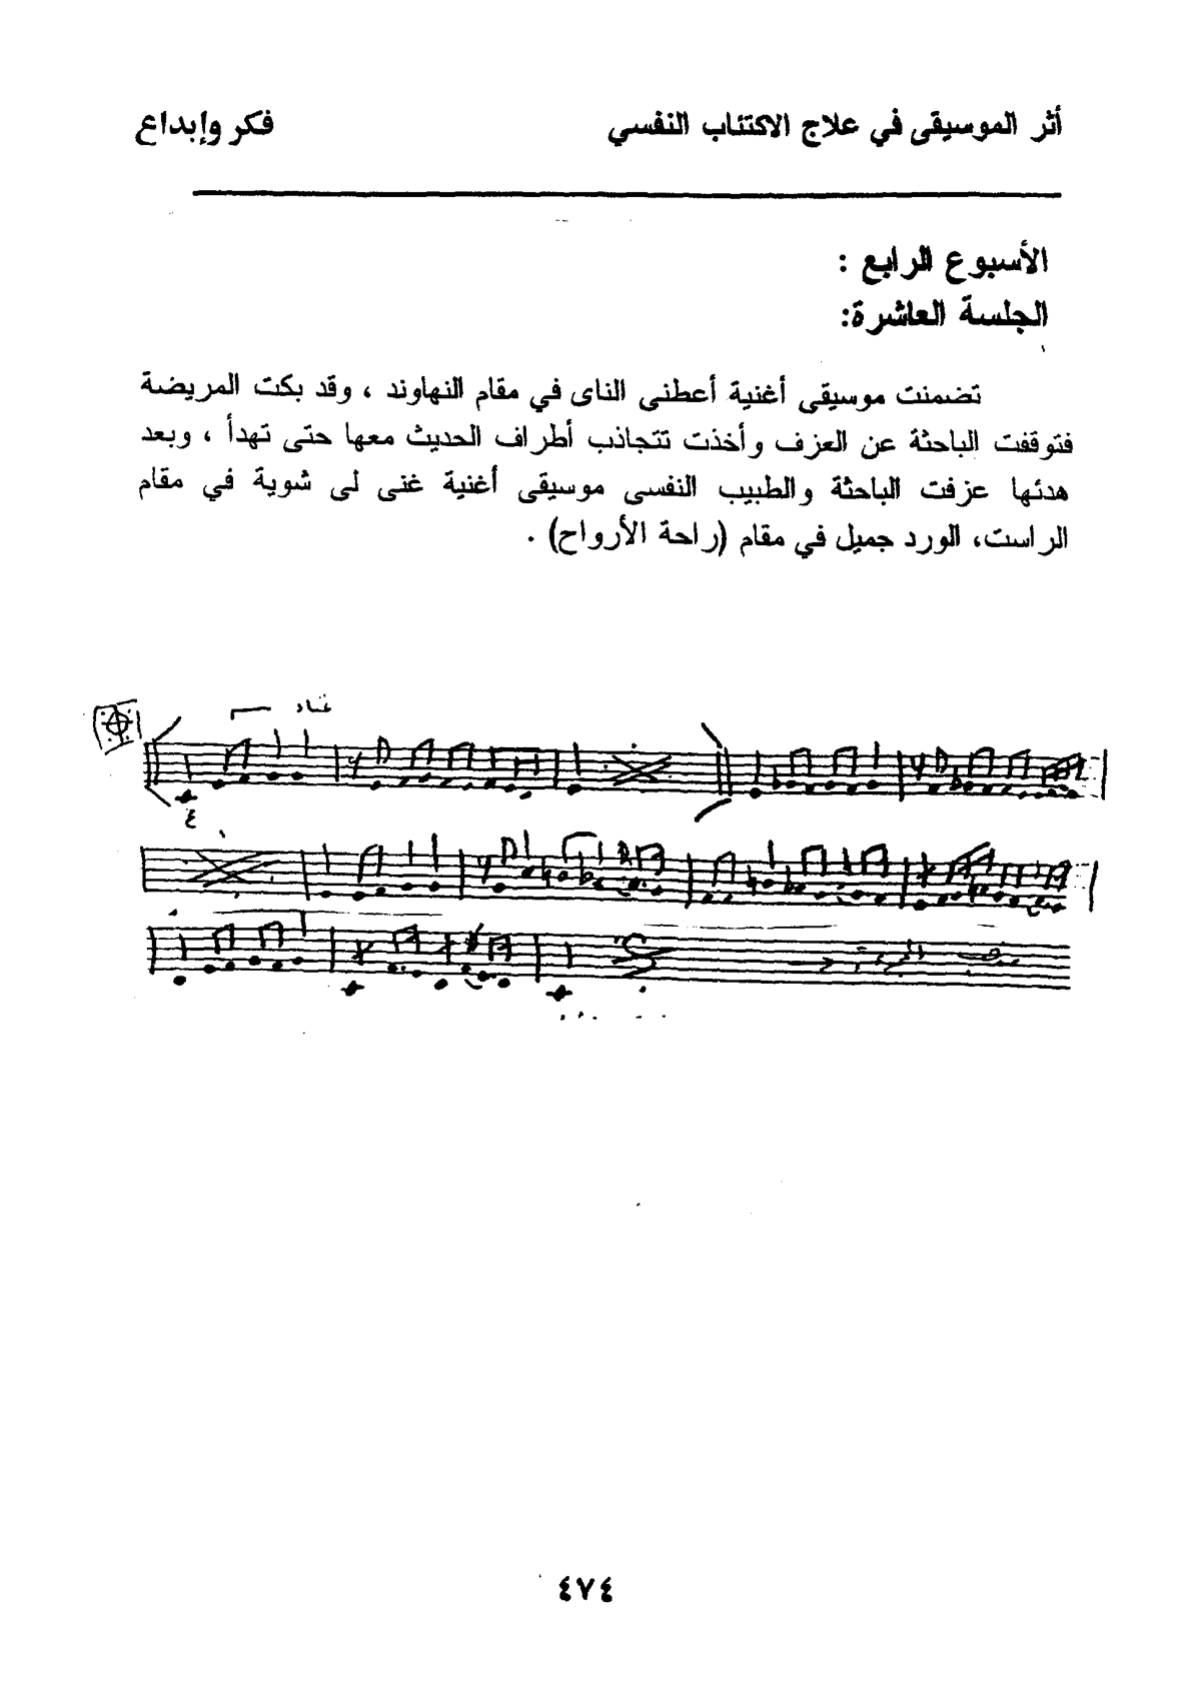 أثر الموسيقى في علاج الاكتئاب النفسي فكر وإبداع
الأسبوع الرابع :
الجلسة العاشرة:
تضمنت موسيقى أغنية أعطنى الناى في مقام النهاوند ، وقد بكت المريضة
فتوقفت الباحثة عن العزف وأخذت تتجاذب أطراف الحديث معها حتى تهدأ ، وبعد
هدئها عزفت الباحثة والطبيب النفسى موسيقى أغنية غنى لى شوية في مقام
الراست، الورد جميل في مقام (راحة الأرواح) .
غناء
٤
٤٧٤